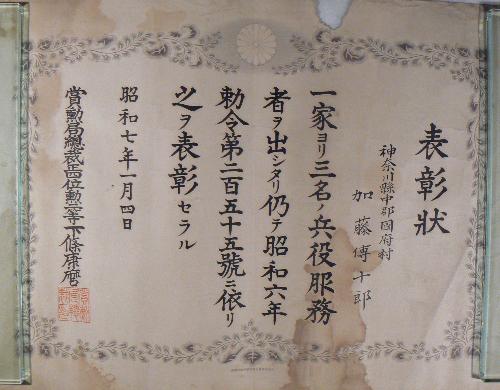 表彰状
神奈川縣中郡國府村
加藤傳十郎
一家ヨリ三名ノ兵役服務
者ヲ出シタリ仍テ昭和六年
勅令第二百五十五號ニ依リ
之ヲ表彰セラル
昭和七年一月四日
賞勲局總裁正四位勲二等下條康麿